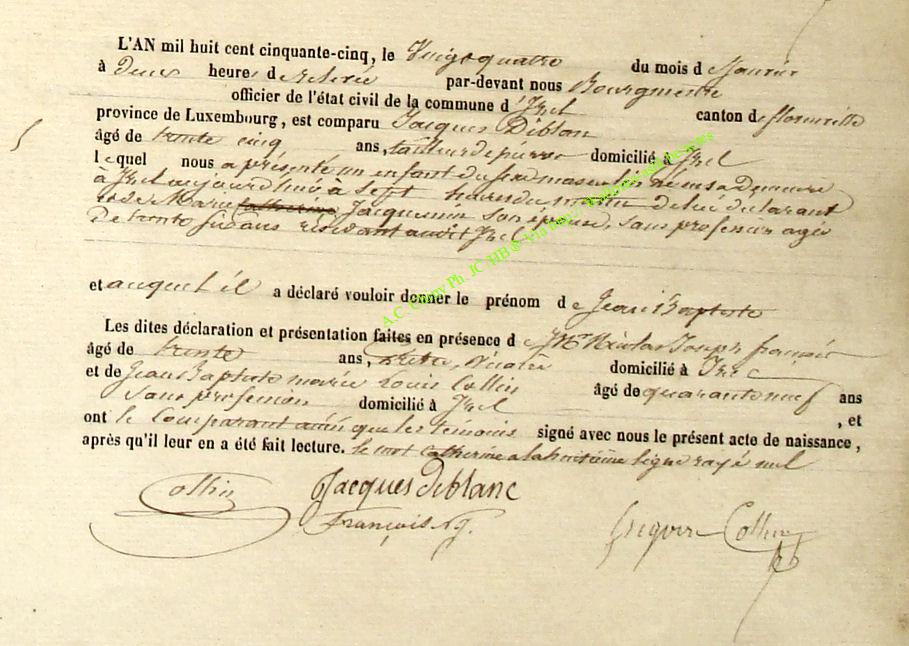 L'AN mil huit cent cinquante-cinq, le Vingt quatre du mois de Janvier
à Deux heures de relevée par-devant nous Bourgmestre
officier de l'état civil de la commune d'Izel canton de florenville
province de Luxembourg, est comparu Jacques Diblan
âgé de trente cinq ans, tailleur de pierre domicilié à Izel
lequel nous a présenté un enfant du sexe masculin né en sa demeure
à Izel aujourd'hui à Sept heures du matin de lui déclarant
et de Marie catherine Jacquemin son épouse, sans profession agée
De trente six ans résidant audit Izel
et auquel il a déclaré vouloir donner le prénom de Jean Baptiste
Les dites déclaration et présentation faites en présence de Mr Nicolas Joseph françois
âgé de trente ans, domicilié à Izel
et de Jean Baptiste marie Louis Collin âgé de quarante neuf ans
Sans profession domicilié à Izel , et
ont le Comparant ainsi que les témoins signé avec nous le présent acte de naissance,
après qu'il leur en a été fait lecture. le mot catherine a la huitième ligne rayé nul
Collin Jacques deblanc
François N J. Collin
A.C. Ph. JC HB